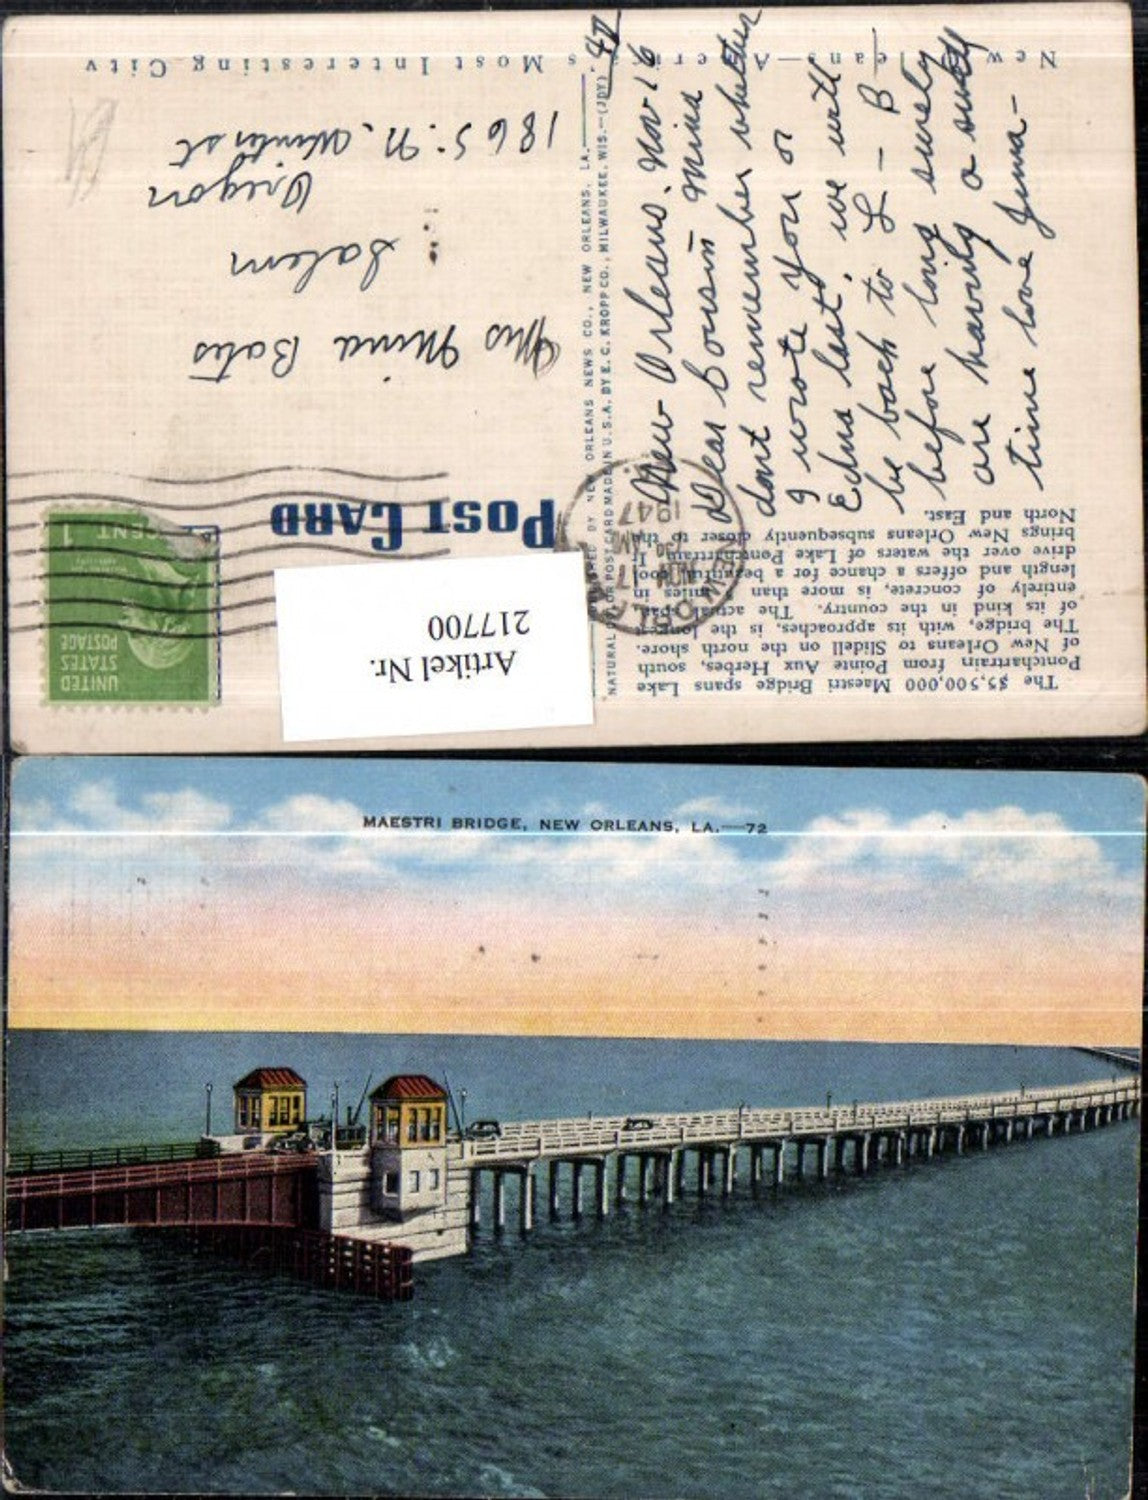 New Orleans—America's Most Interesting City
The $5,500,000 Maestri Bridge spans Lake
Pontchartrain from Pointe Aux Herbes, south
of New Orleans to Slidell on the north shore.
The bridge, with its approaches, is the longest
of its kind in the country. The actual span,
entirely of concrete, is more than miles in
length and offers a chance for a beautiful, cool
drive over the waters of Lake Pontchartrain. It
brings New Orleans subsequently closer to the
North and East.
New Orleans. Nov 16 47
Dear Cousin Mina
dont remember whether
I wrote you or
Edna last. we will
be back to L - B
before long surely
are having a swell
time love Juna-
NEW ORLEANS NEWS CO., NEW ORLEANS, LA.
"NATURAL COLOR POST CARD MADE IN U.S.A. BY E. C. KROPP CO., MILWAUKEE, WIS.—(JDY)
POST CARD
UNITED
STATES
POSTAGE
1 CENT
NOV
17
1947
Mrs Mina Bates
Salem
Oregon
1865. N. Winter st
Artikel Nr.
217700
MAESTRI BRIDGE, NEW ORLEANS, LA.—72